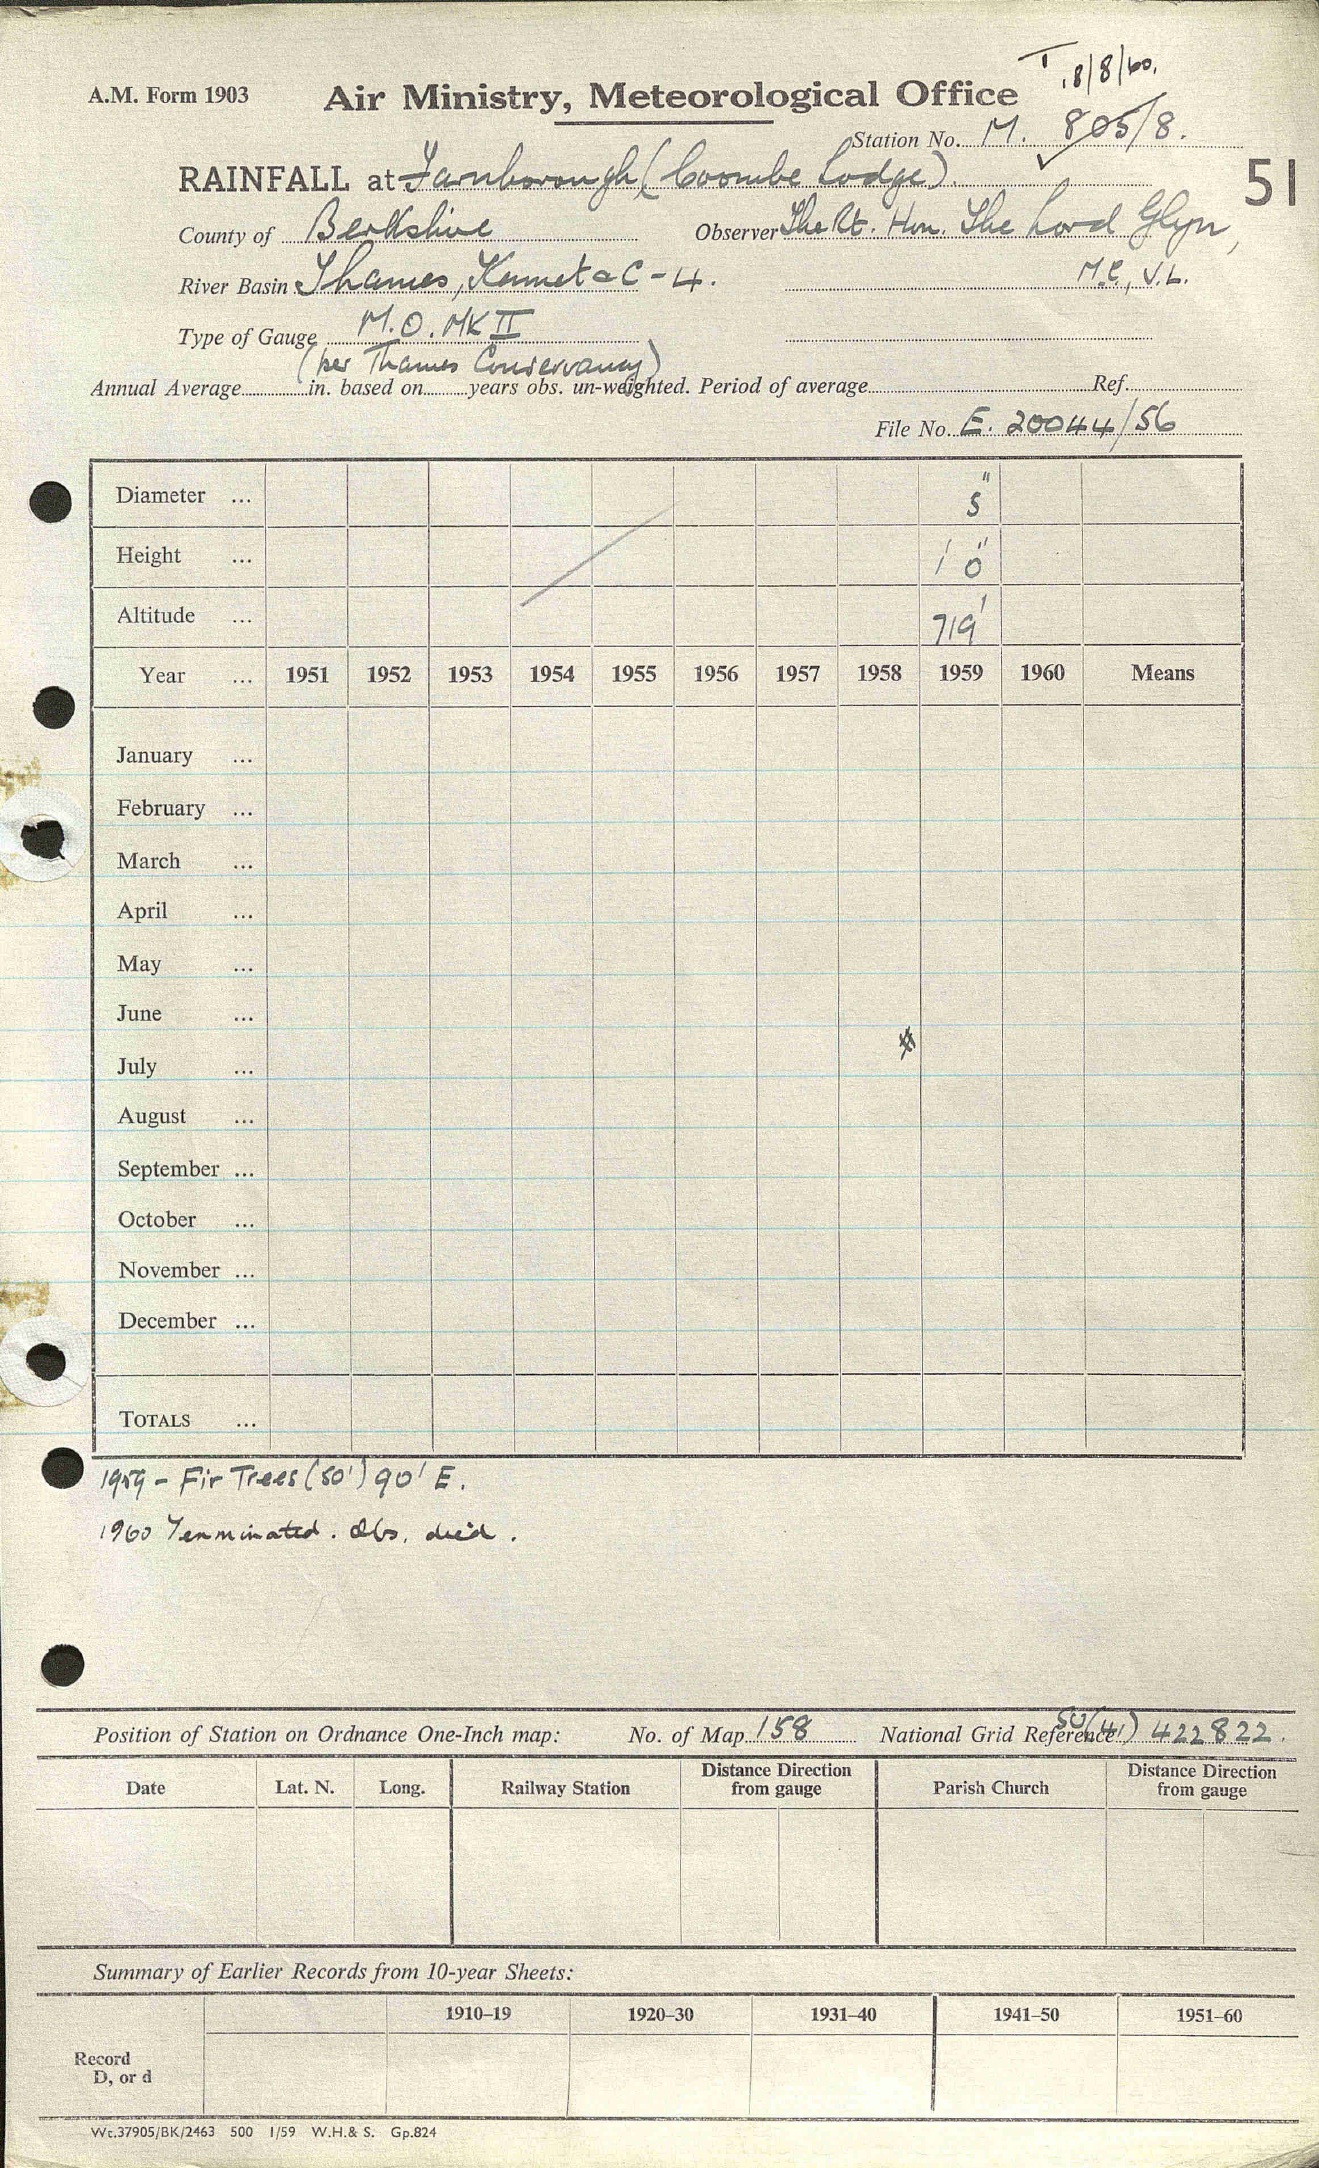 T 18/8/60.
A.M. Form 1903
Air Ministry, Meteorological Office
Station No. M. 805/8.
51
RAINFALL at Farnborough (Coombe Lodge).
County of Berkshire Observer The Rt. Hon. The Lord Glyn,
River Basin Thames, Kennet & C - 4. M.C., D.L.
Type of Gauge M.O. MK II
(per Thames Conservancy)
Annual Average in. based on years obs. un-weighted. Period of average Ref.
File No. E. 20044/56
Diameter ... 5"
Height ... 1' 0"
Altitude ... 719'
Year ... 1951 1952 1953 1954 1955 1956 1957 1958 1959 1960 Means
January ...
February ...
March ...
April ...
May ...
June ...
July ...
August ...
September ...
October ...
November ...
December ...
TOTALS ...
1959 - Fir Trees (50') 90' E.
1960 Terminated. Obs. died.
Position of Station on Ordnance One-Inch map: No. of Map 158 National Grid Reference 50(41) 422822.
Date Lat. N. Long. Railway Station Distance Direction from gauge Parish Church Distance Direction from gauge
Summary of Earlier Records from 10-year Sheets:
1910–19 1920–30 1931–40 1941–50 1951–60
Record
D, or d
Wt.37905/BK/2463 500 1/59 W.H.& S. Gp.824